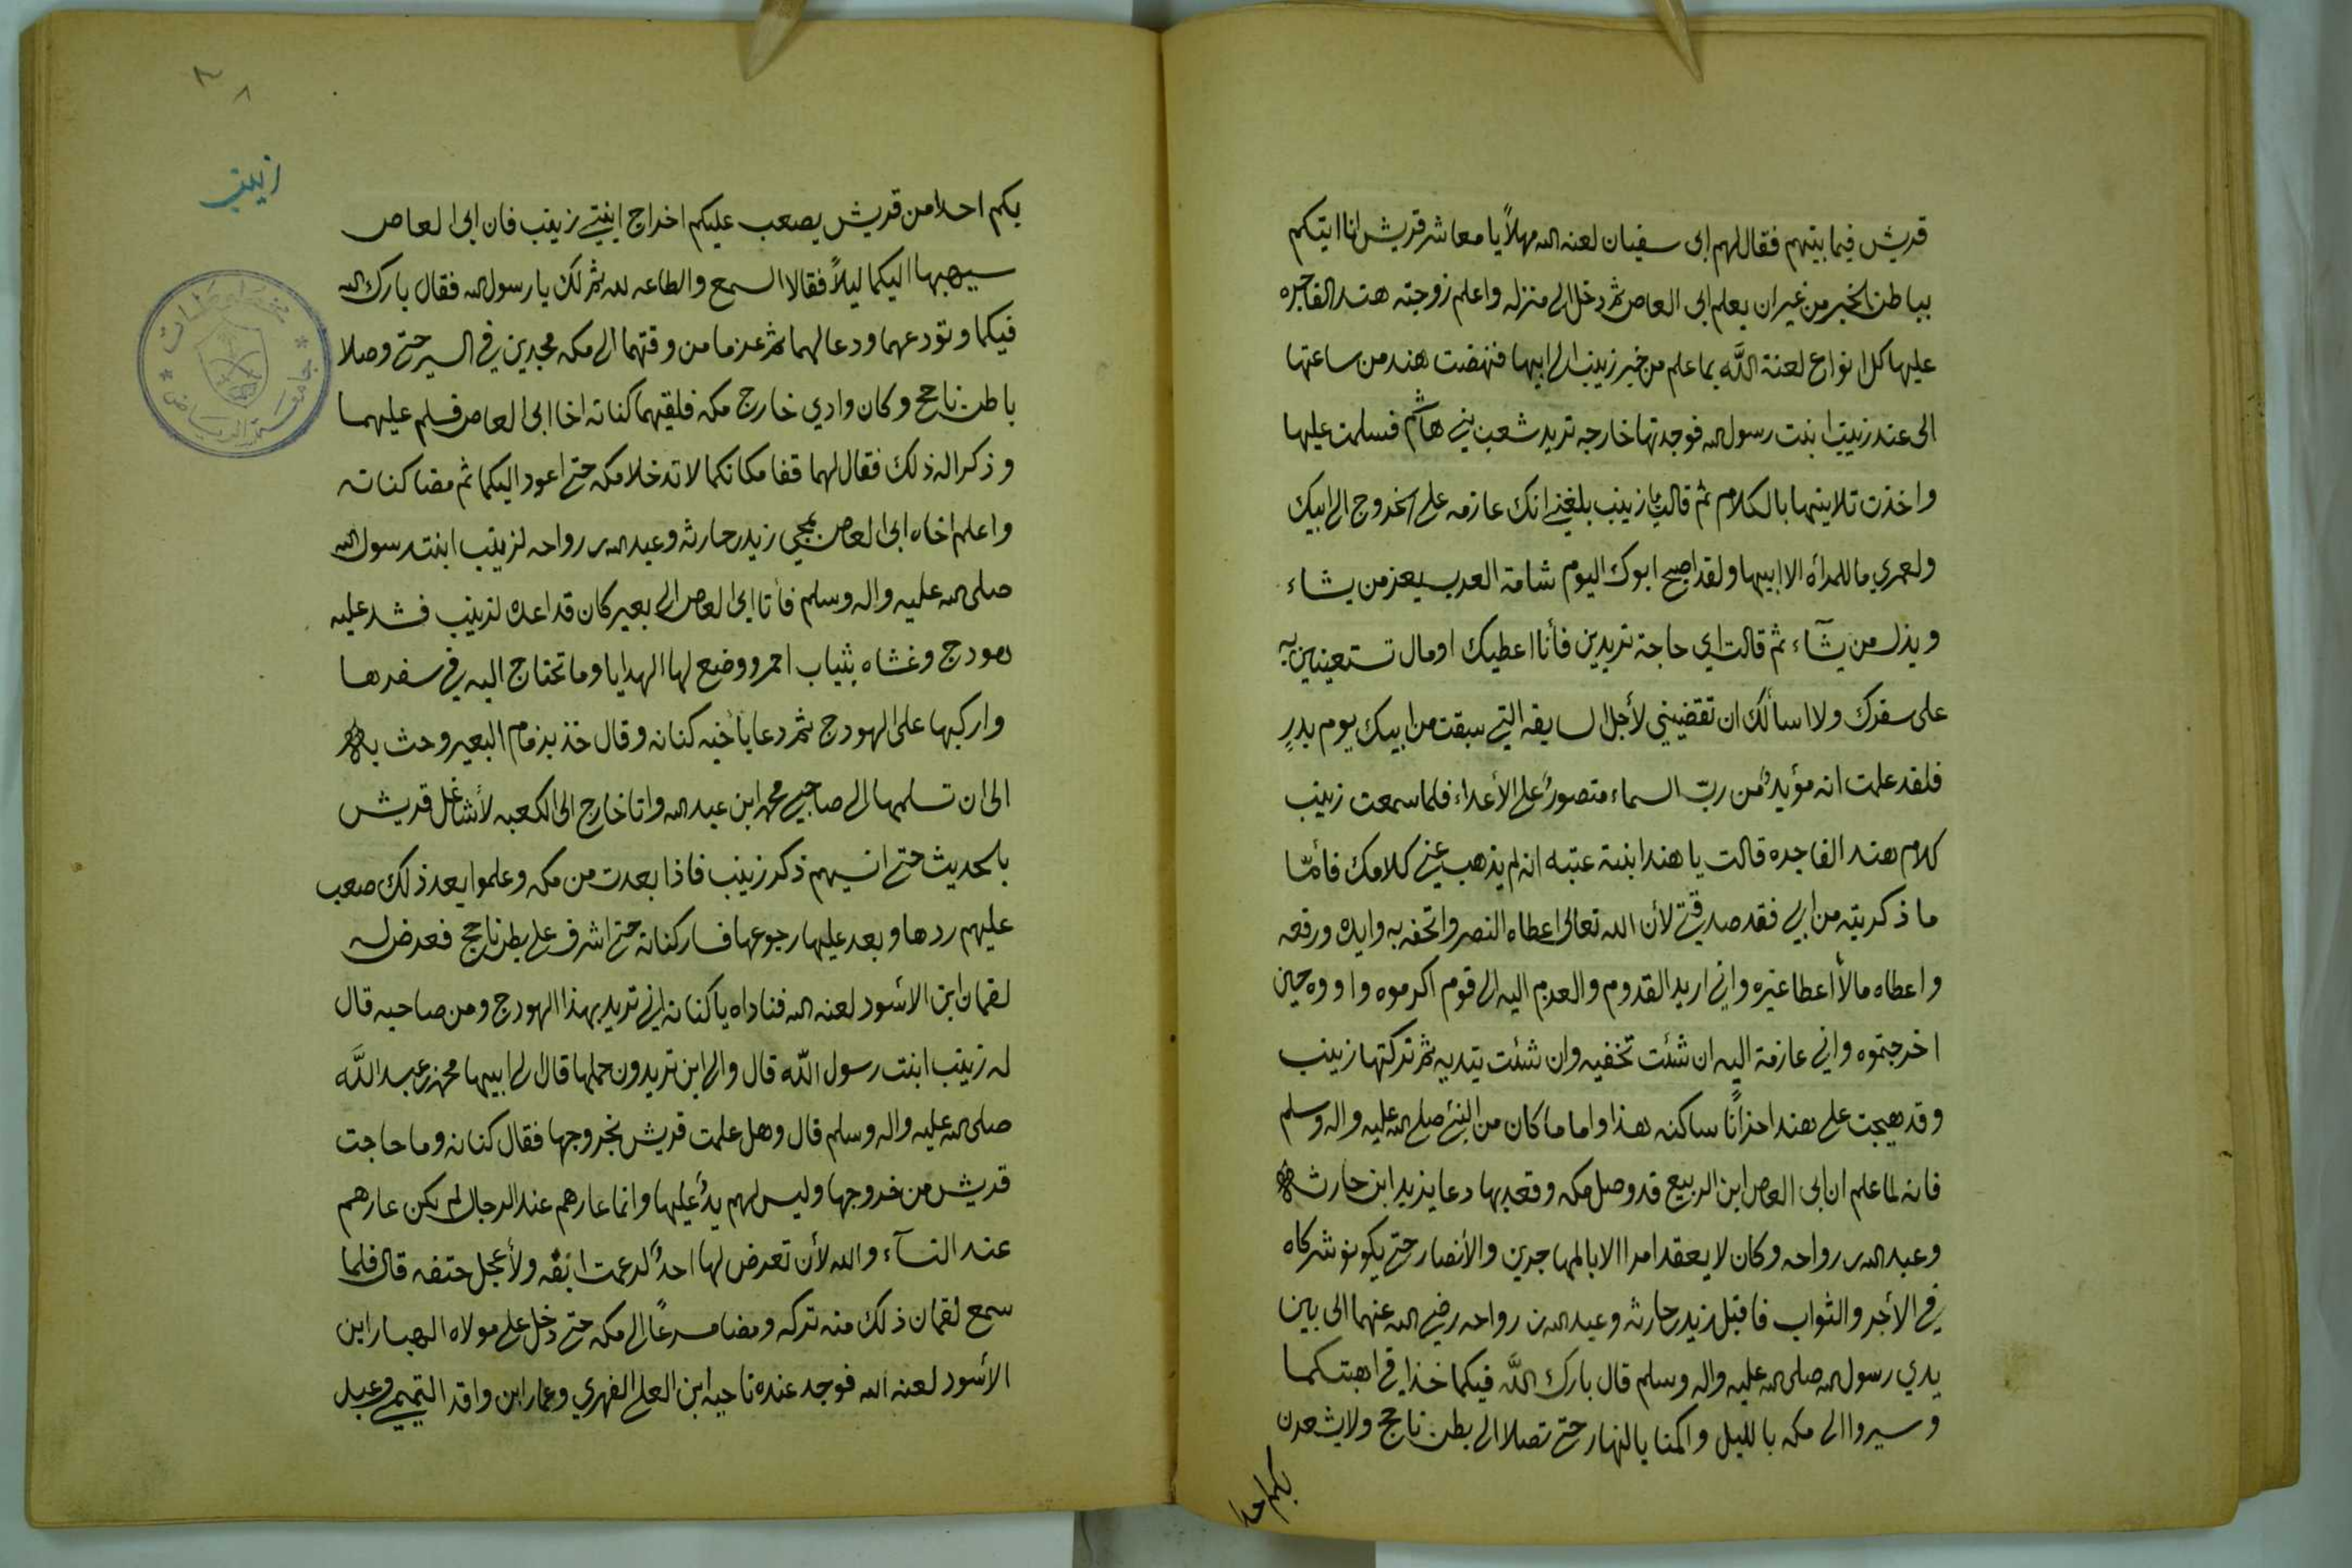 قريش فيما بينهم فقال لهم ابى سفيان لعنه الله مهلاً يا معاشر قريش انا ايتكم
بباطن الخبر من غير ان يعلم ابى العاص ثم دخل الى منزله واعلم زوجته هند الفاجره
عليها كل انواع لعنة اللَّه بما علم من خبر زينب الى ابيها فنهضت هند من ساعتها
الى عند زينب ابنت رسول الله فوجدتها خارجه تريد شعب بني هاشم فسلمت عليها
واخذت تلاينها بالكلام ثم قالت يا زينب بلغني انك عازمه على الخروج الى ابيك
ولعمري ما للمرأه الا ابيها ولقد اصبح ابوك اليوم شامة العرب يعز من يشاء
ويذل من يشآء ثم قالت اي حاجة تريدين فأنا اعطيك او مال تستعينين به
على سفرك ولا اسألك ان تقضيني لأجل السايقه التي سبقت من ابيك يوم بدرٍ
فلقد علمت انه مؤيدٌ من ربّ السماء منصورٌ على الأعداء فلما سمعت زينب
كلام هند الفاجره قالت يا هند ابنة عتبه انه لم يذهب عني كلامك فأمّا
ما ذكرتيه من ابي فقد صدقتي لأن الله تعالى اعطاه النصر واتحفه به وايده ورفعه
واعطاه مالا أعطا غيره واني اريد القدوم والعزم اليه الى قوم اكرموه واووه حين
اخرجتموه واني عازمة اليه ان شئت تخفيه وان شئت تبديه ثم تركتها زينب
وقد هيجت على هند احزانًا ساكنه هذا واما ما كان من النبي صلى الله عليه واله وسلم
فانه لما علم ان ابى العاص ابن الربيع قد وصل مكه وقعد بها دعا بزيد ابن حارثه
وعبد الله بن رواحه وكان لا يعقد امرا الا بالمهاجرين والأنصار حتى يكونو شركاه
في الأجر والثواب فاقبل زيد بن حارثه وعبد الله بن رواحه رضي الله عنهما الى بين
يدي رسول الله صلى الله عليه واله وسلم قال بارك اللَّه فيكما خذا في اهبتكما
وسيروا الى مكه بالليل واكمنا بالنهار حتى تصلا الى بطن ناجح ولا يشعرن
بكم احدا
زينب
بكم احدا من قريش يصعب عليكم اخراج ابنتي زينب فان ابى العاص
سيهبها اليكما ليلاً فقالا السمع والطاعه لله ثم لك يا رسول الله فقال بارك الله
فيكما وتودعهما ودعا لهما ثم عزما من وقتهما الى مكه مجدين في السير حتى وصلا
باطن ناجح وكان وادي خارج مكه فلقيهما كنانه اخا ابى العاص فسلم عليهما
وذكرا له ذلك فقال لهما قفا مكانكما لا تدخلا مكه حتى اعود اليكما ثم مضا كنانه
واعلم اخاه ابى العاص بمجي زيد بن حارثه وعبد الله بن رواحه لزينب ابنت رسول الله
صلى الله عليه واله وسلم فأتا ابى العاص الى بعير كان قد اعده لزينب فشد عليه
هودج وغشاه بثياب احمر ووضع لها الهدايا وما تحتاج اليه في سفرها
واركبها على الهودج ثم دعا بأخيه كنانه وقال خذ بزمام البعير وحث به
الى ان تسلمها الى صاحبي محمد ابن عبد الله وانا خارج الى الكعبه لأشاغل قريش
بالحديث حتى انسيهم ذكر زينب فاذا بعدت من مكه وعلموا بعد ذلك صعب
عليهم ردها وبعد عليها رجوعها فسار كنانة حتى اشرف على بطن ناجح فعرض له
لقمان ابن الاسود لعنه الله فناداه يا كنانه اني تريد بهذا الهودج ومن صاحبه قال
له زينب ابنت رسول اللّه قال والى اين تريدون حملها قال الى ابيها محمد بن عبد اللَّه
صلى الله عليه واله وسلم قال وهل علمت قريش بخروجها فقال كنانه وما حاجت
قريش من خروجها وليس لهم يدٌ عليها وانما عارهم عند الرجال لم يكن عارهم
عند النسآء والله لأن تعرض لها احدٌ لدعمت انفه ولأعجل حتفه قال فلما
سمع لقمان ذلك منه تركه ومضا مسرعًا الى مكه حتى دخل على مولاه الهبار ابن
الأسود لعنه الله فوجد عنده ناحيه ابن العلي الفهري وعمار ابن واقد التميمي وعبد